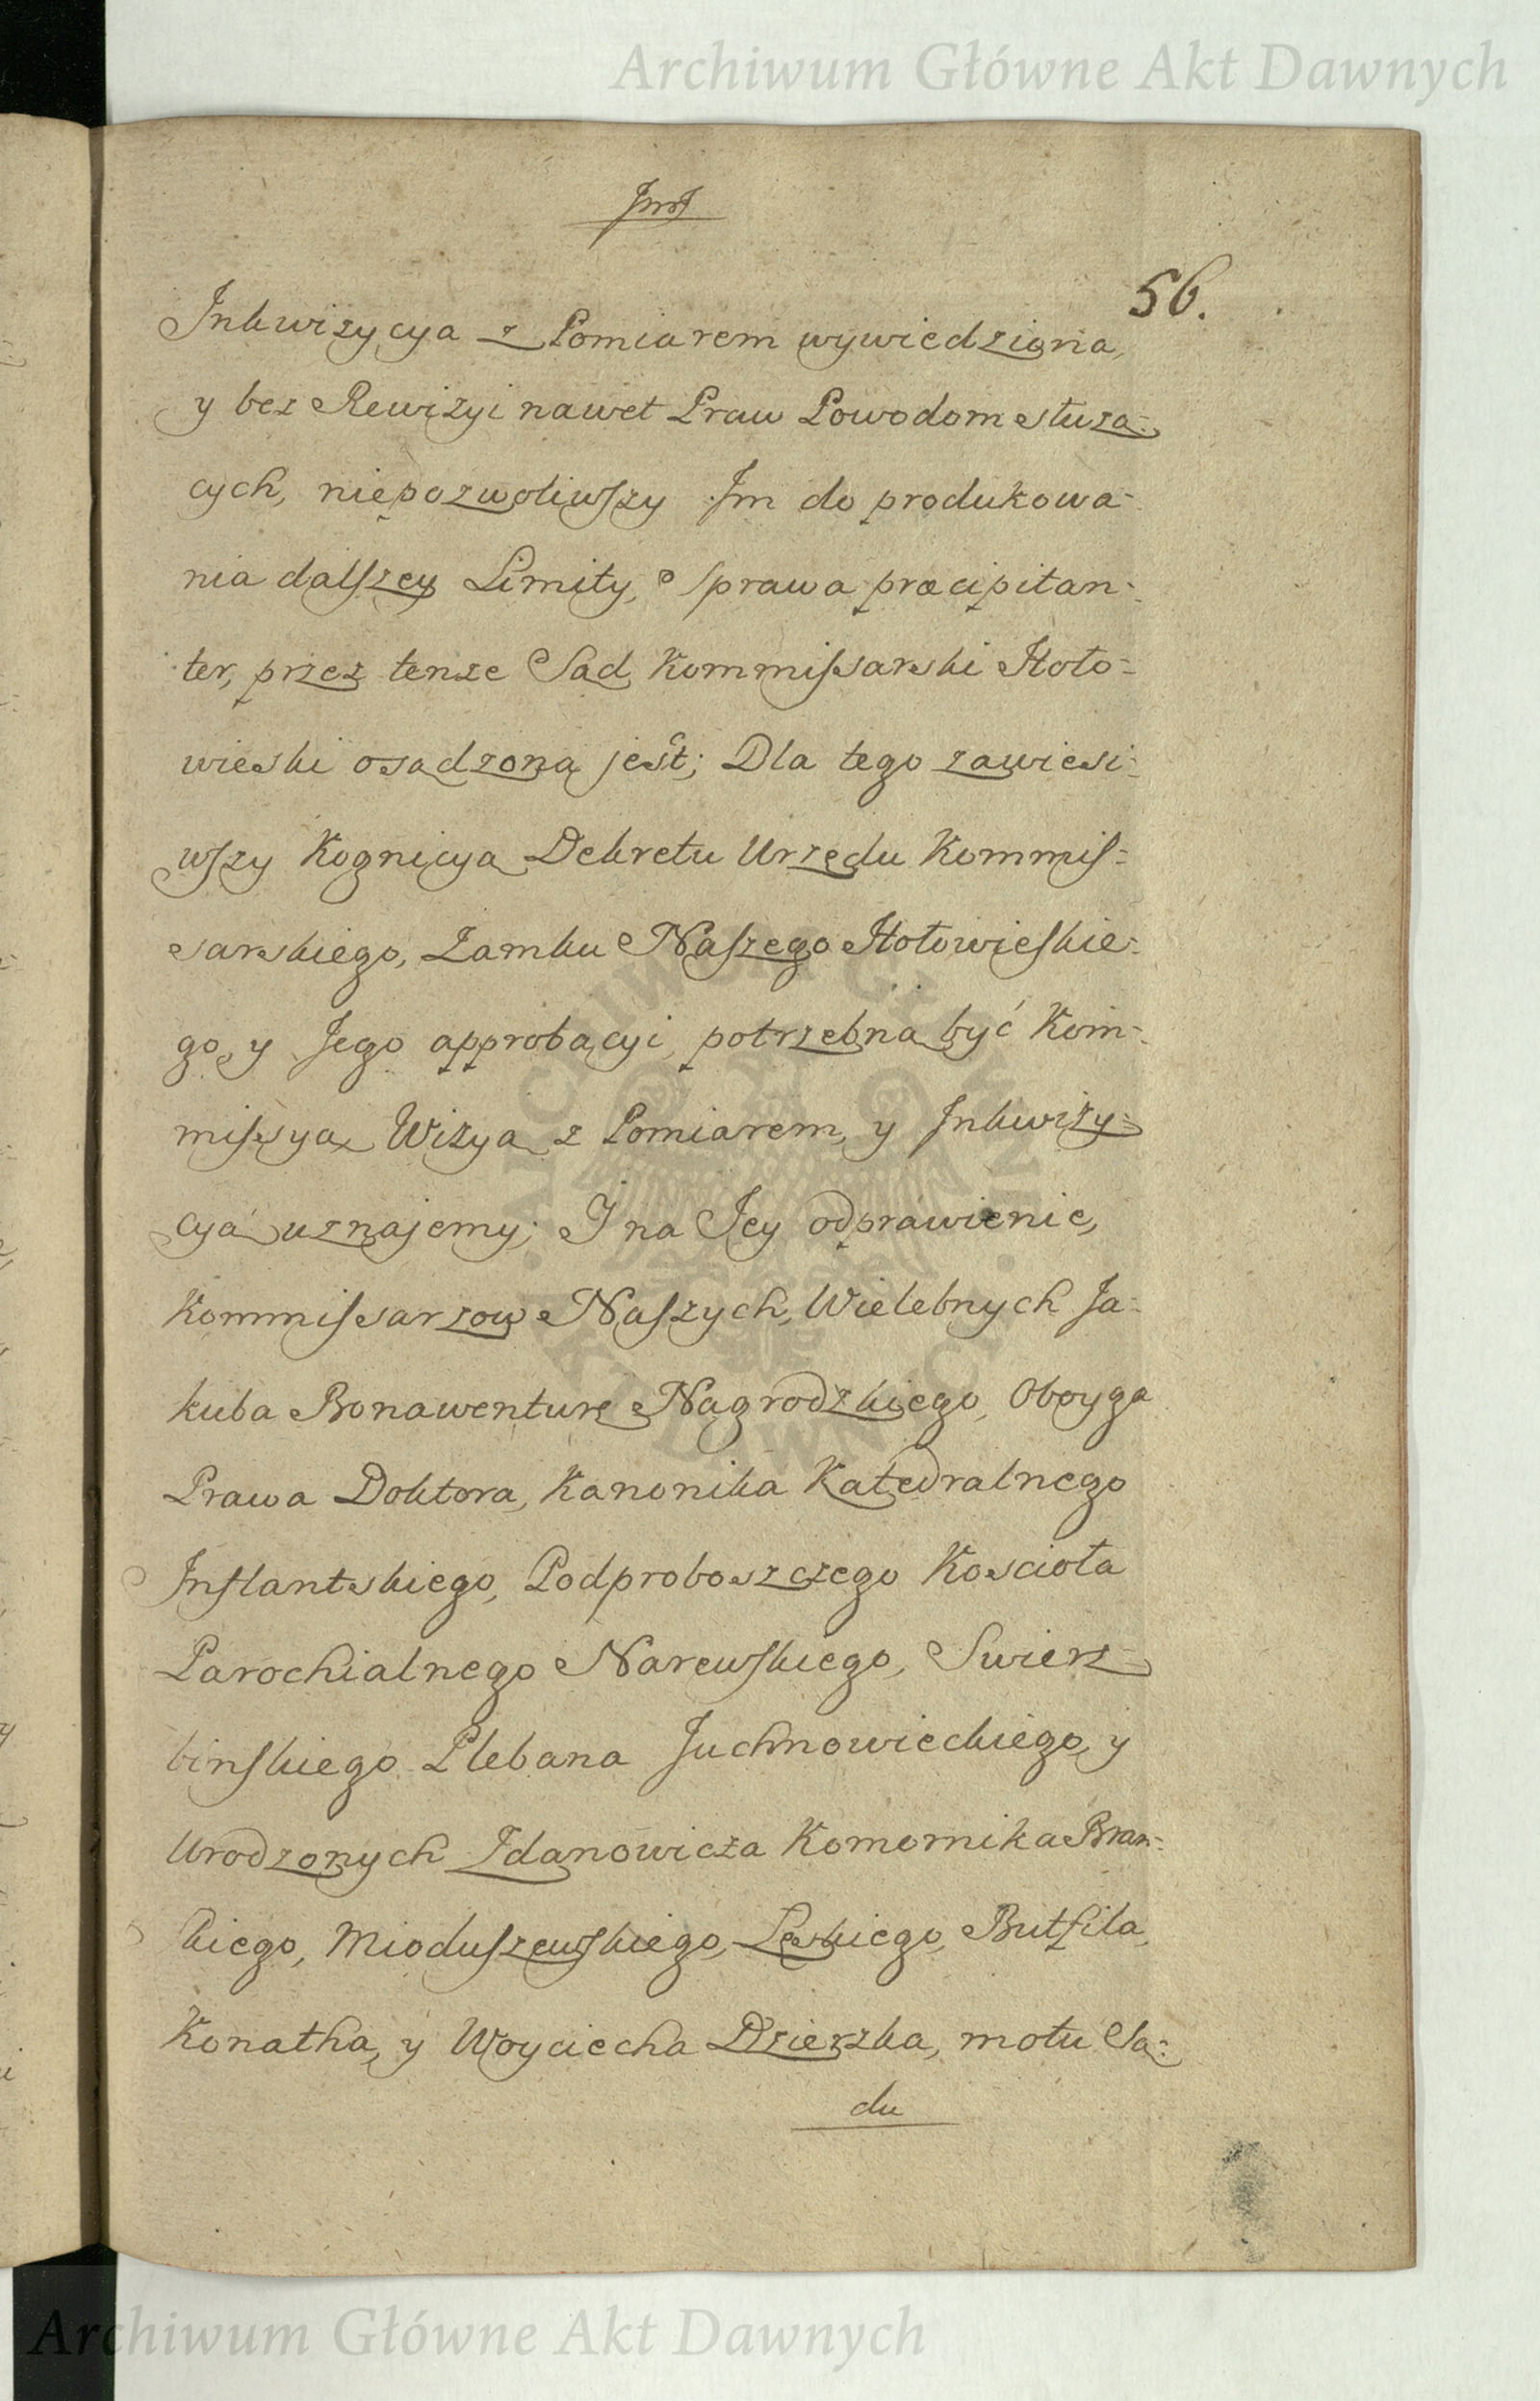 Archiwum Główne Akt Dawnych
56.
Inkwizycya z Pomiarem wywiedziona,
y bez Rewizyi nawet Praw Powodom słuzą-
cych, niepozwoliwszy Im do produkowa-
nia dalszey Limity, Sprawa præcipitan-
ter, przez tenze Sąd Kommissarski Hoło-
wieski osądzona jest; Dla tego zawiesi-
wszy Kognicyą Dekretu Urzędu Kommis-
sarskiego, Zamku Naszego Hołowieskie-
go, y Jego approbacyi, potrzebną być Kom-
missyą, Wizyą z Pomiarem, y Inkwizy-
cyą uznajemy; I na Jey odprawienie,
Kommissarzow Naszych, Wielebnych Ja-
kuba Bonawenturę Nagrodzkiego, Oboyga
Prawa Doktora, Kanonika Katedralnego
Inflantskiego, Podproboszczego Koscioła
Parochialnego Narewskiego, Swierz-
binskiego Plebana Juchnowieckiego, y
Urodzonych Zdanowicza Komornika Bran-
skiego, Mioduszewskiego, Łęskiego, Butfiła,
Konatha, y Woyciecha Dzierzka, motu Są-
du
Archiwum Główne Akt Dawnych